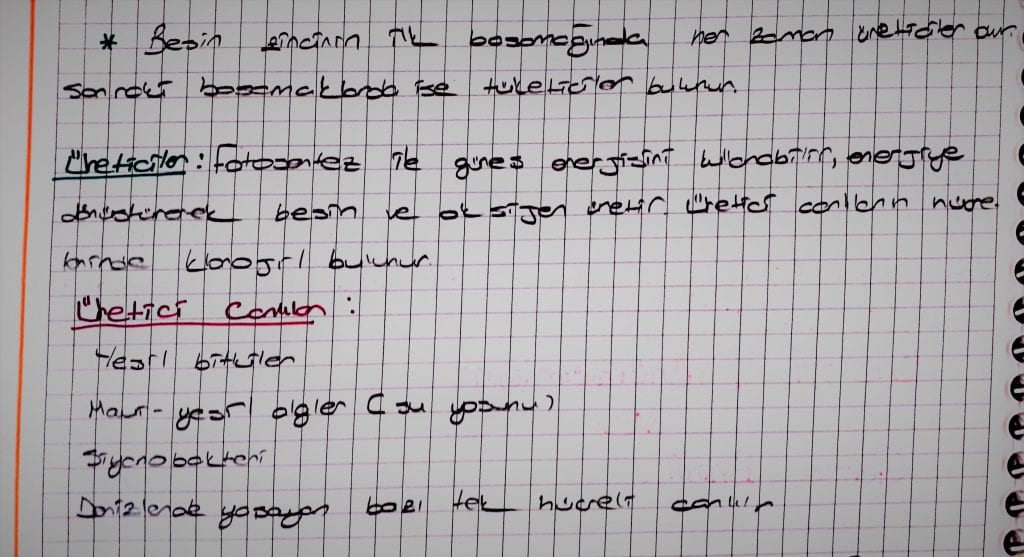 * Besin zincirinin ilk basamağında her zaman üreticiler bulunur.
Sonraki basamaklarda ise tüketiciler bulunur.
Üreticiler: Fotosentez ile güneş enerjisini kullanabilir, enerjiye
dönüştürerek besin ve oksijen üretir. Üretici canlıların hücre
lerinde klorofil bulunur.
Üretici Canlılar:
Yeşil bitkiler
Mavi-yeşil algler (su yosunu)
Siyanobakteri
Denizlerde yaşayan bazı tek hücreli canlılar